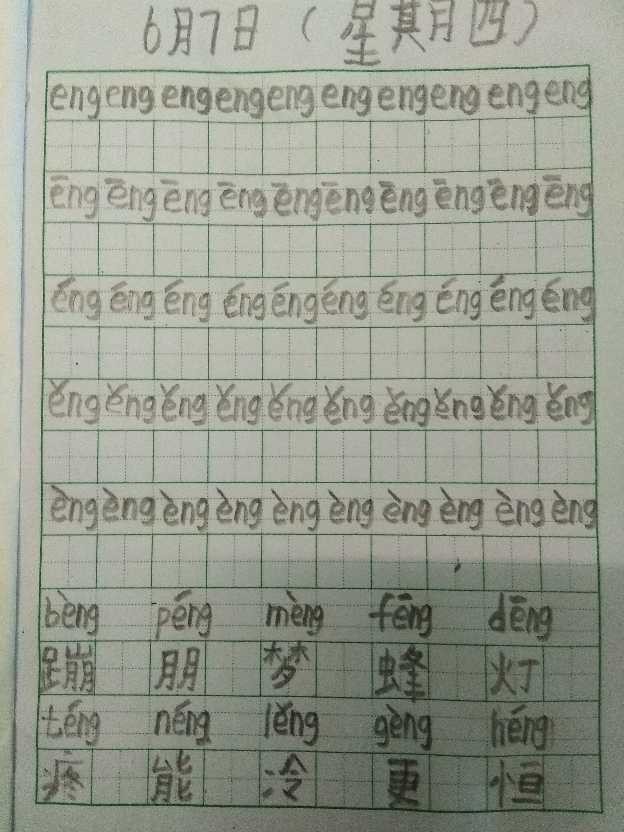 6月7日（星期四）
eng eng eng eng eng eng eng eng eng eng
ēng ēng ēng ēng ēng ēng ēng ēng ēng ēng
éng éng éng éng éng éng éng éng éng éng
ěng ěng ěng ěng ěng ěng ěng ěng ěng ěng
èng èng èng èng èng èng èng èng èng èng
bèng péng mèng fēng dēng
蹦 朋 梦 蜂 灯
téng néng lěng gèng héng
疼 能 冷 更 恒